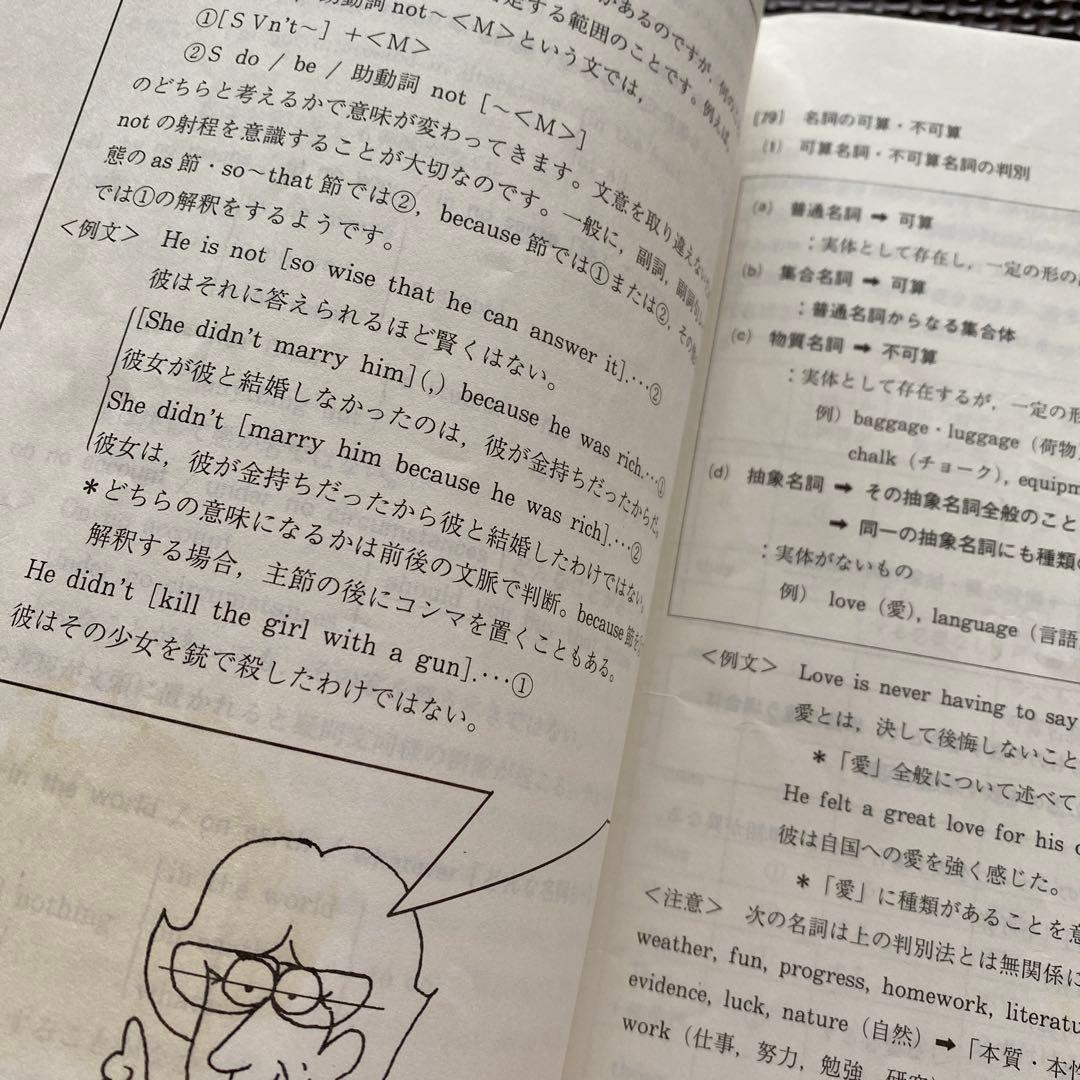 定する範囲のことです。例えば、
助動詞 not~<M>という文では,
①[S Vn't~] +<M>
②S do / be / 助動詞 not [~<M>]
のどちらと考えるかで意味が変わってきます。文意を取り違えない
notの射程を意識することが大切なのです。一般に, 副詞, 副詞句
態のas節・so~that節では②, because節では①または②, その他
では①の解釈をするようです。
<例文> He is not [so wise that he can answer it].…②
彼はそれに答えられるほど賢くはない。
[She didn't marry him](,) because he was rich.…①
彼女が彼と結婚しなかったのは, 彼が金持ちだったからだ。
She didn't [marry him because he was rich].…②
彼女は, 彼が金持ちだったから彼と結婚したわけではない。
*どちらの意味になるかは前後の文脈で判断。because節を
解釈する場合, 主節の後にコンマを置くこともある。
He didn't [kill the girl with a gun].…①
彼はその少女を銃で殺したわけではない。
[79] 名詞の可算・不可算
(1) 可算名詞・不可算名詞の判別
(a) 普通名詞 ➡ 可算
:実体として存在し, 一定の形の
(b) 集合名詞 ➡ 可算
:普通名詞からなる集合体
(c) 物質名詞 ➡ 不可算
:実体として存在するが, 一定の形
例) baggage・luggage (荷物)
chalk (チョーク), equipm
(d) 抽象名詞 ➡ その抽象名詞全般のこと
➡ 同一の抽象名詞にも種類の
:実体がないもの
例) love (愛), language (言語
<例文> Love is never having to say
愛とは, 決して後悔しないこと
*「愛」全般について述べて
He felt a great love for his c
彼は自国への愛を強く感じた。
*「愛」に種類があることを意
<注意> 次の名詞は上の判別法とは無関係に
weather, fun, progress, homework, literatu
evidence, luck, nature (自然) ➡「本質・本性
work (仕事, 努力, 勉強, 研究)